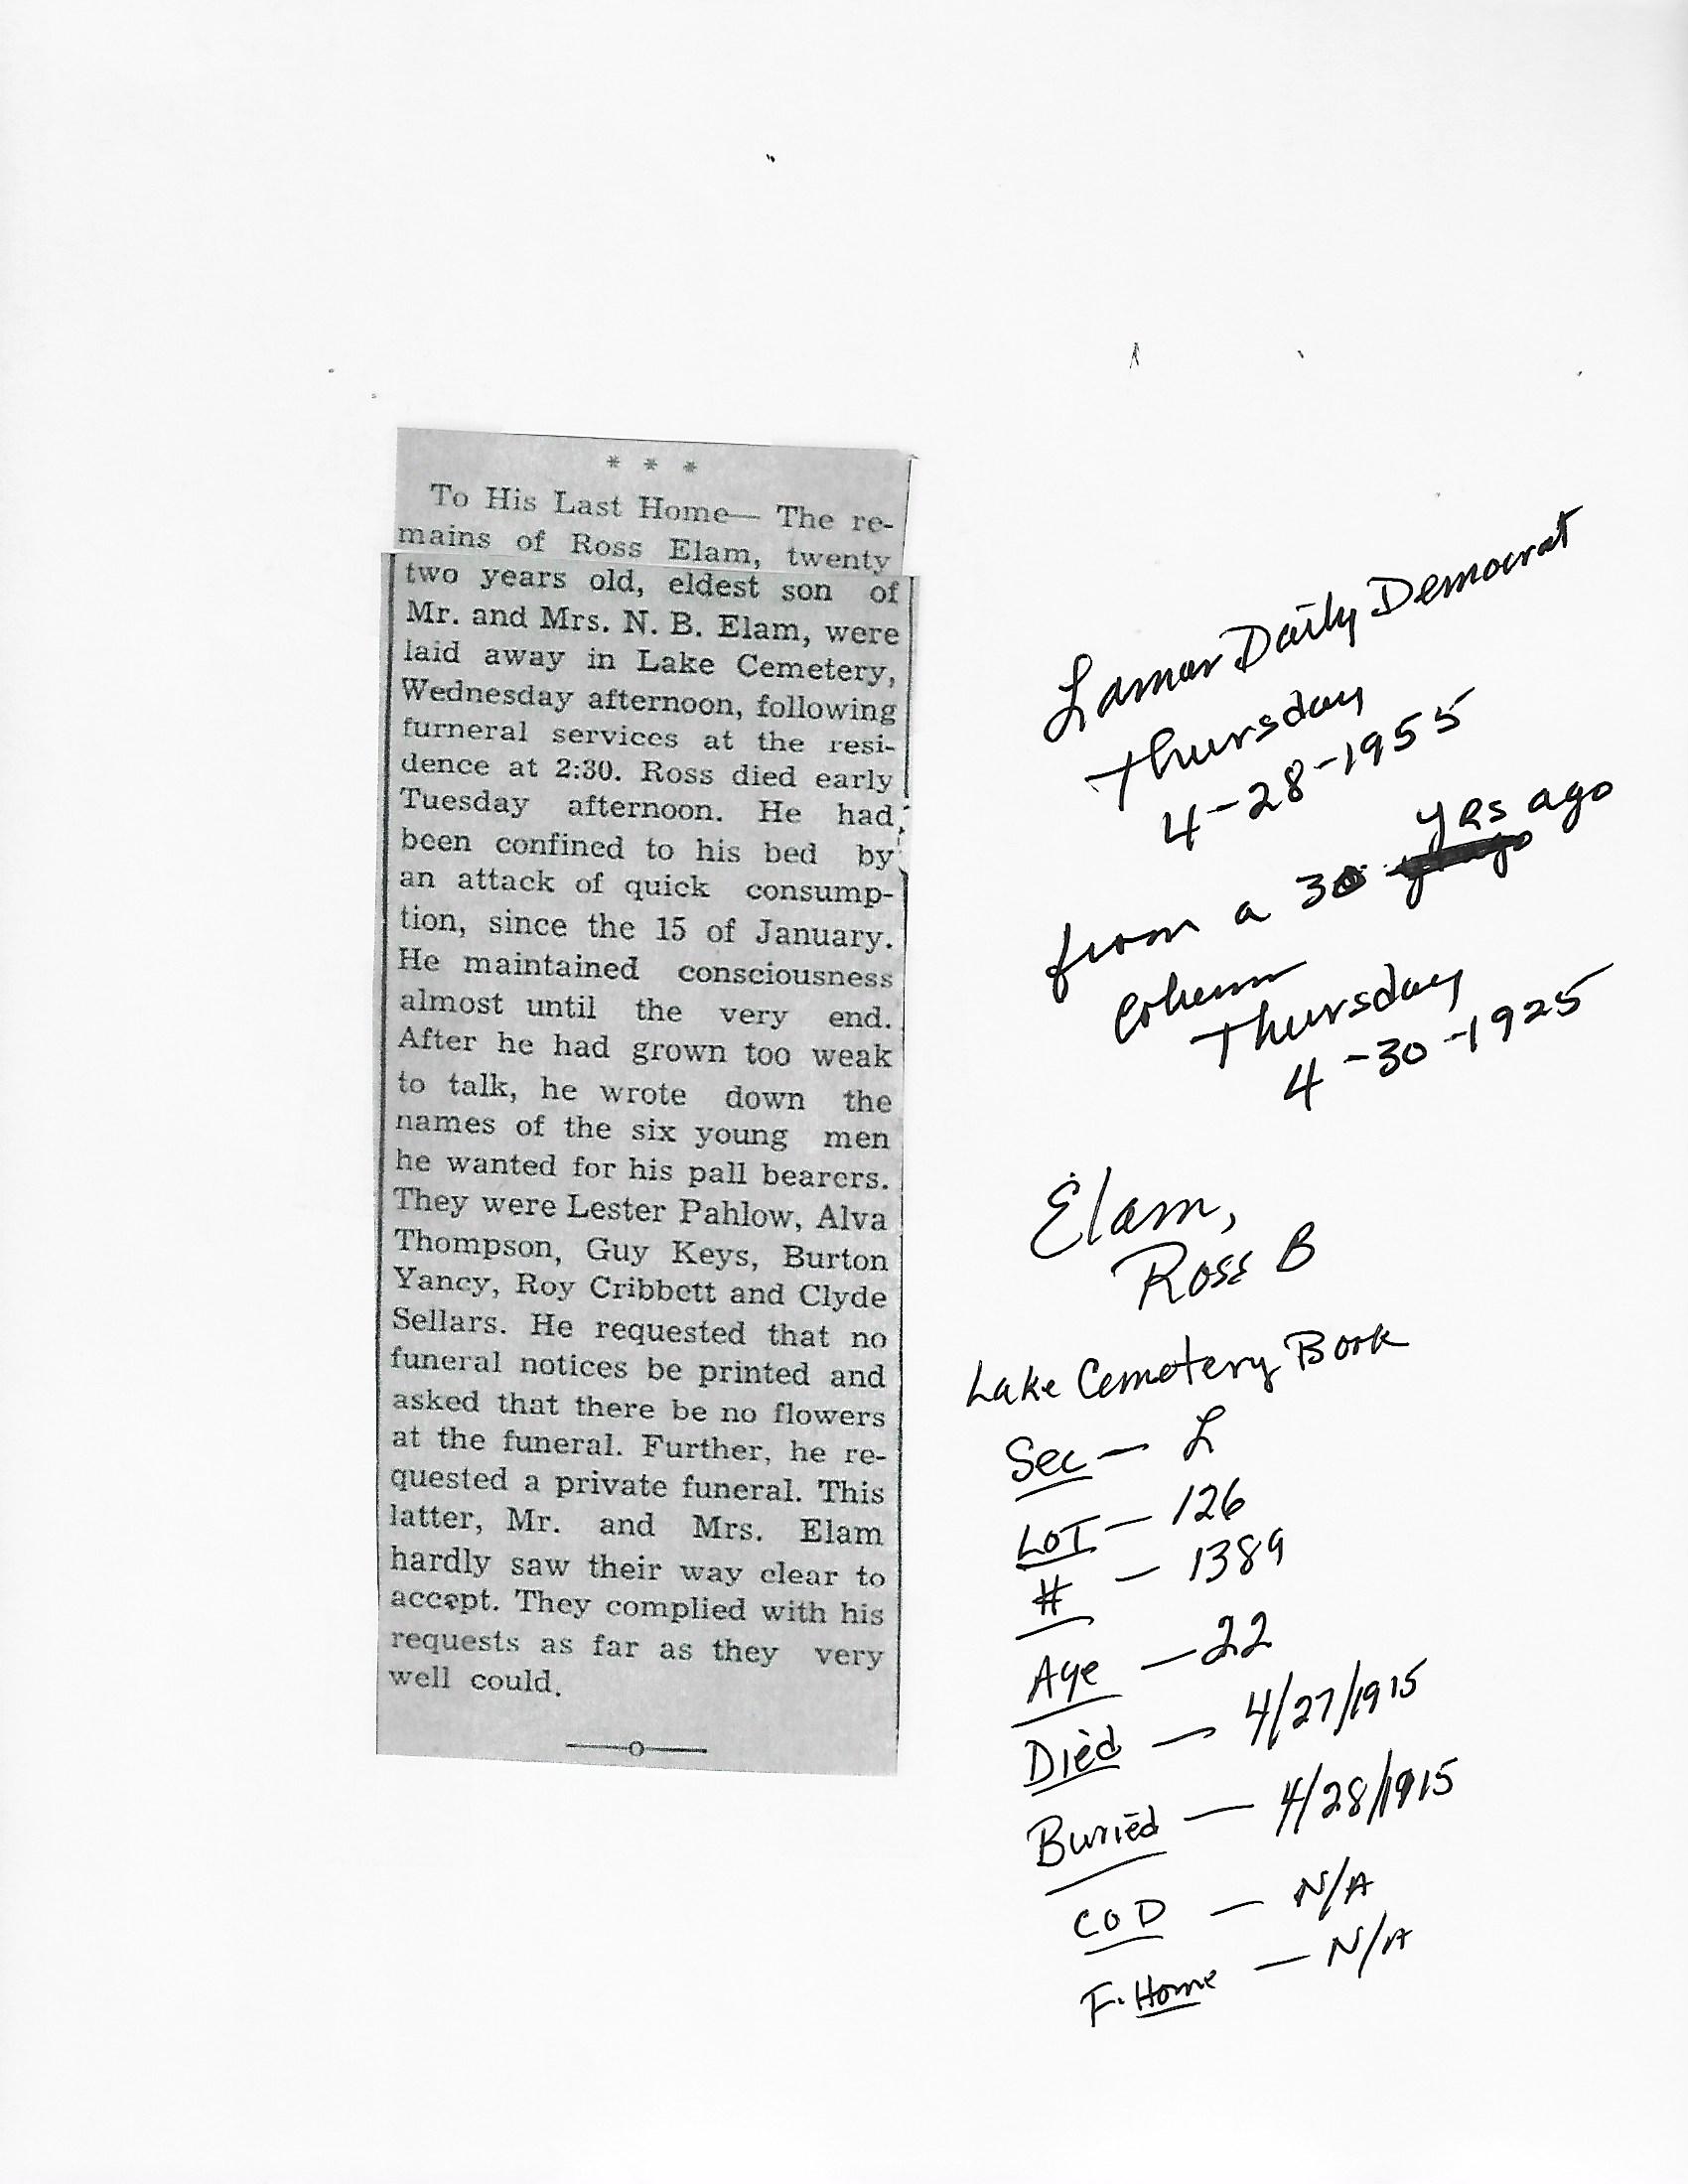 * * *
To His Last Home— The re-
mains of Ross Elam, twenty
two years old, eldest son of
Mr. and Mrs. N. B. Elam, were
laid away in Lake Cemetery,
Wednesday afternoon, following
furneral services at the resi-
dence at 2:30. Ross died early
Tuesday afternoon. He had
been confined to his bed by
an attack of quick consump-
tion, since the 15 of January.
He maintained consciousness
almost until the very end.
After he had grown too weak
to talk, he wrote down the
names of the six young men
he wanted for his pall bearers.
They were Lester Pahlow, Alva
Thompson, Guy Keys, Burton
Yancy, Roy Cribbett and Clyde
Sellars. He requested that no
funeral notices be printed and
asked that there be no flowers
at the funeral. Further, he re-
quested a private funeral. This
latter, Mr. and Mrs. Elam
hardly saw their way clear to
accept. They complied with his
requests as far as they very
well could.
—o—
Lamar Daily Democrat
Thursday
4-28-1955
from a 30 yrs ago
column
Thursday
4-30-1925
Elam,
Ross B
Lake Cemetery Book
Sec — L
LOT — 126
# — 1389
Age — 22
Died — 4/27/1915
Buried — 4/28/1915
COD — N/A
F. Home — N/A